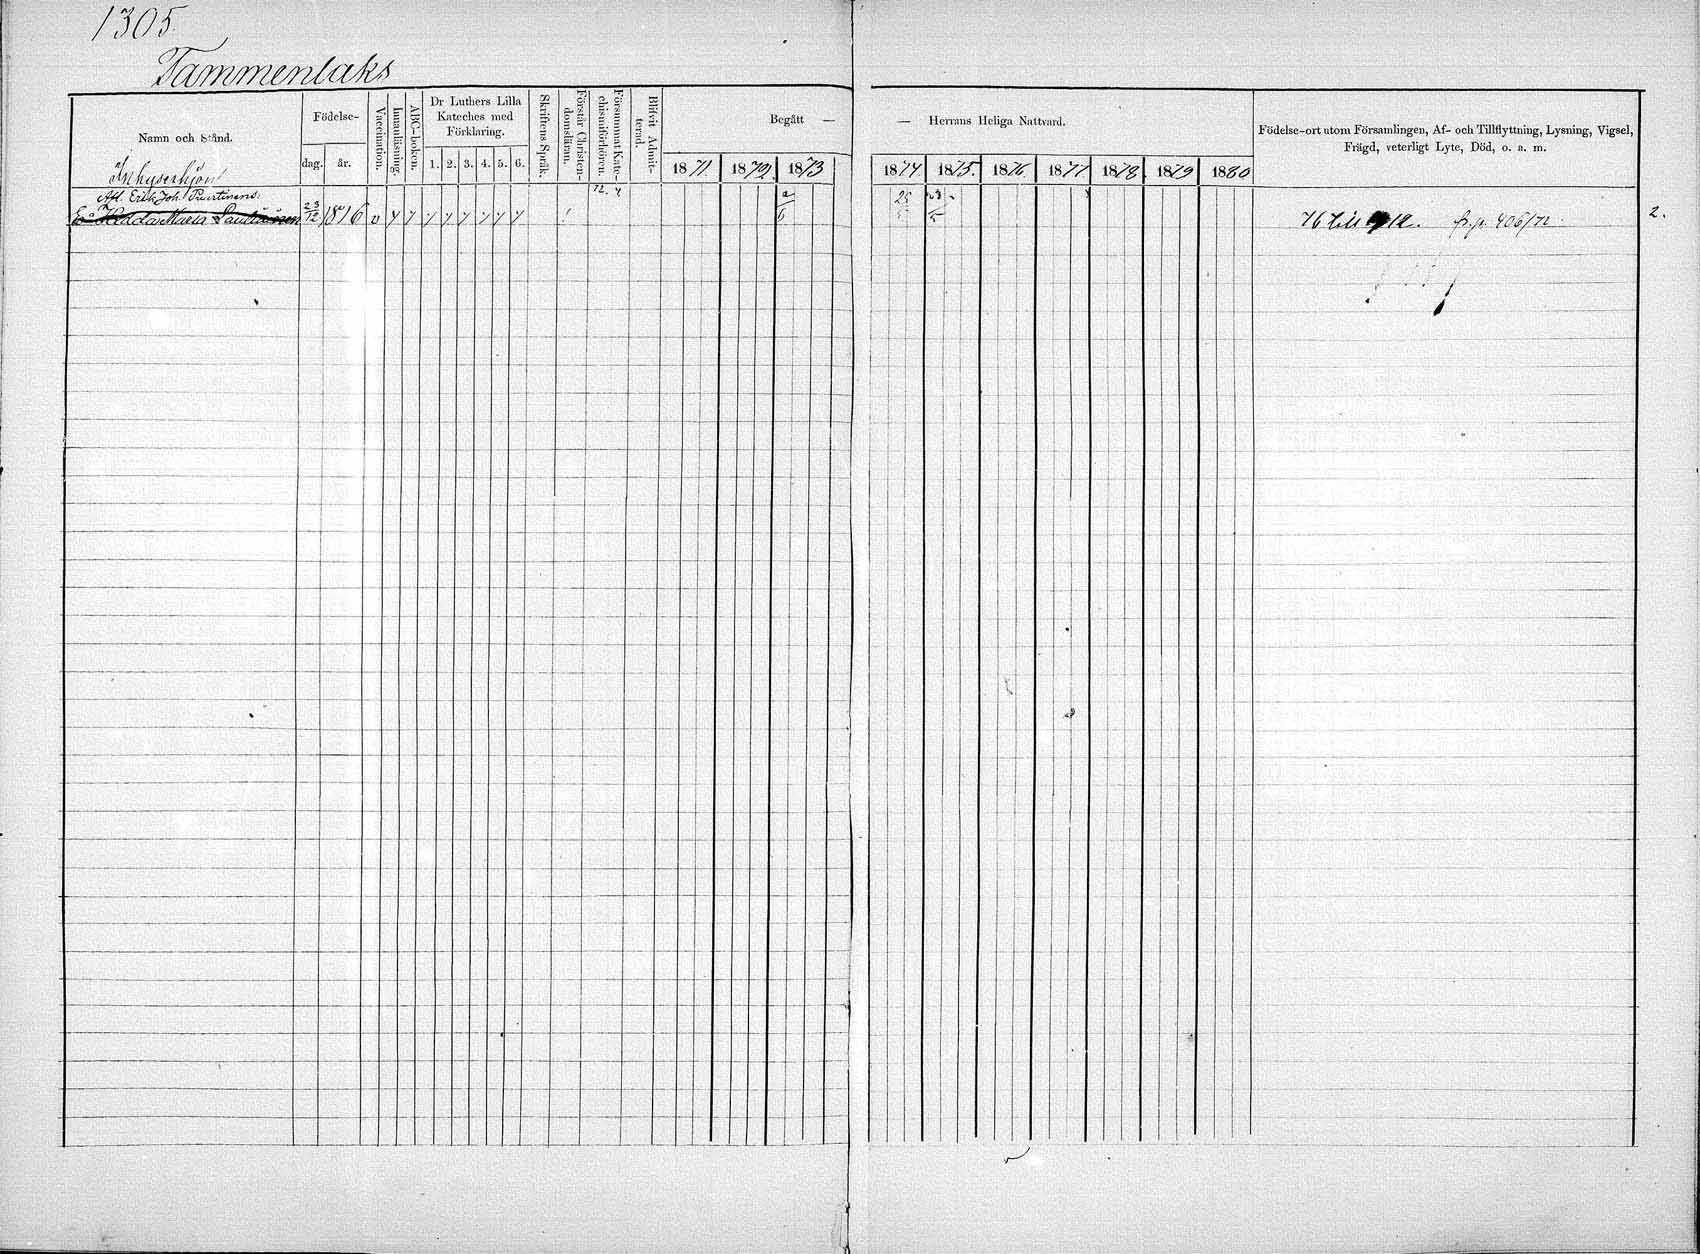 1305.
Tammenlaks
Namn och Stånd.
Födelse-
dag. år.
Vaccination.
Innanläsning.
ABC-boken.
Dr Luthers Lilla
Kateches med
Förklaring.
1. 2. 3. 4. 5. 6.
Skriftens Språk.
Förstår Christen-
domsläran.
Försummat Kate-
chismiförhören.
Blifvit Admit-
terad.
Begått —
1871 1872 1873
— Herrans Heliga Nattvard.
1874 1875. 1876 1877 1878. 1879 1880
Födelse-ort utom Församlingen, Af- och Tillflyttning, Lysning, Vigsel,
Frägd, veterligt Lyte, Död, o. a. m.
Inhyseshjon
Afl. Erik Joh.
Hedda Maria 23/12 1816 v 76 till fr. p. 406/72 2.